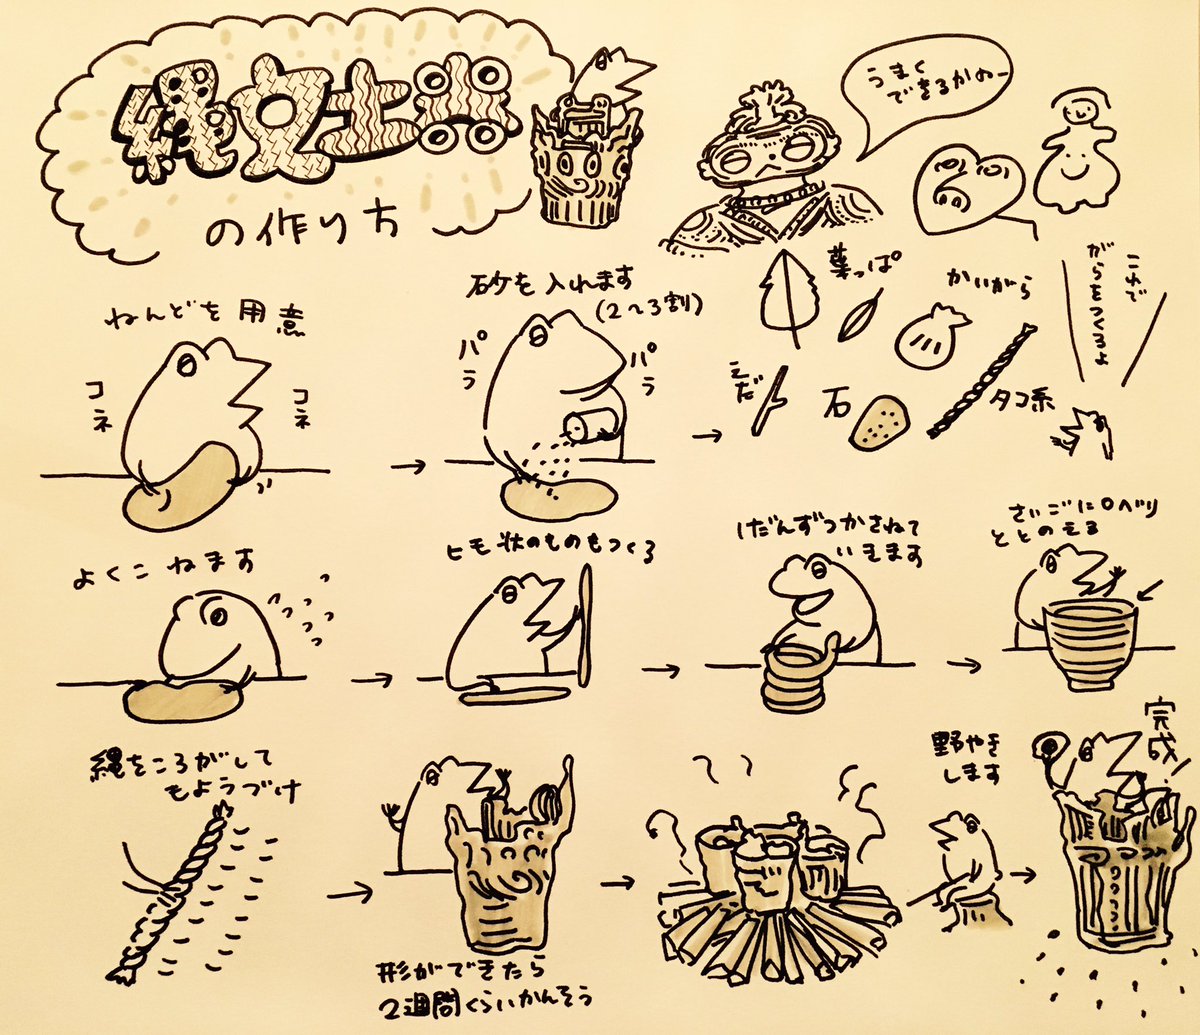 縄文土器
の作り方
うまく
できるかのー
ねんどを用意
コネ
コネ
砂を入れます
(2〜3割)
パラ
パラ
葉っぱ
かいがら
えだ
石
タコ糸
これで
がらをつくるよ
よくこねます
ヒモ状のものもつくる
1だんずつかさねて
いきます
さいごに ペリ
ととのえる
縄をころがして
もようづけ
形ができたら
2週間くらいかんそう
野やき
します
完成!